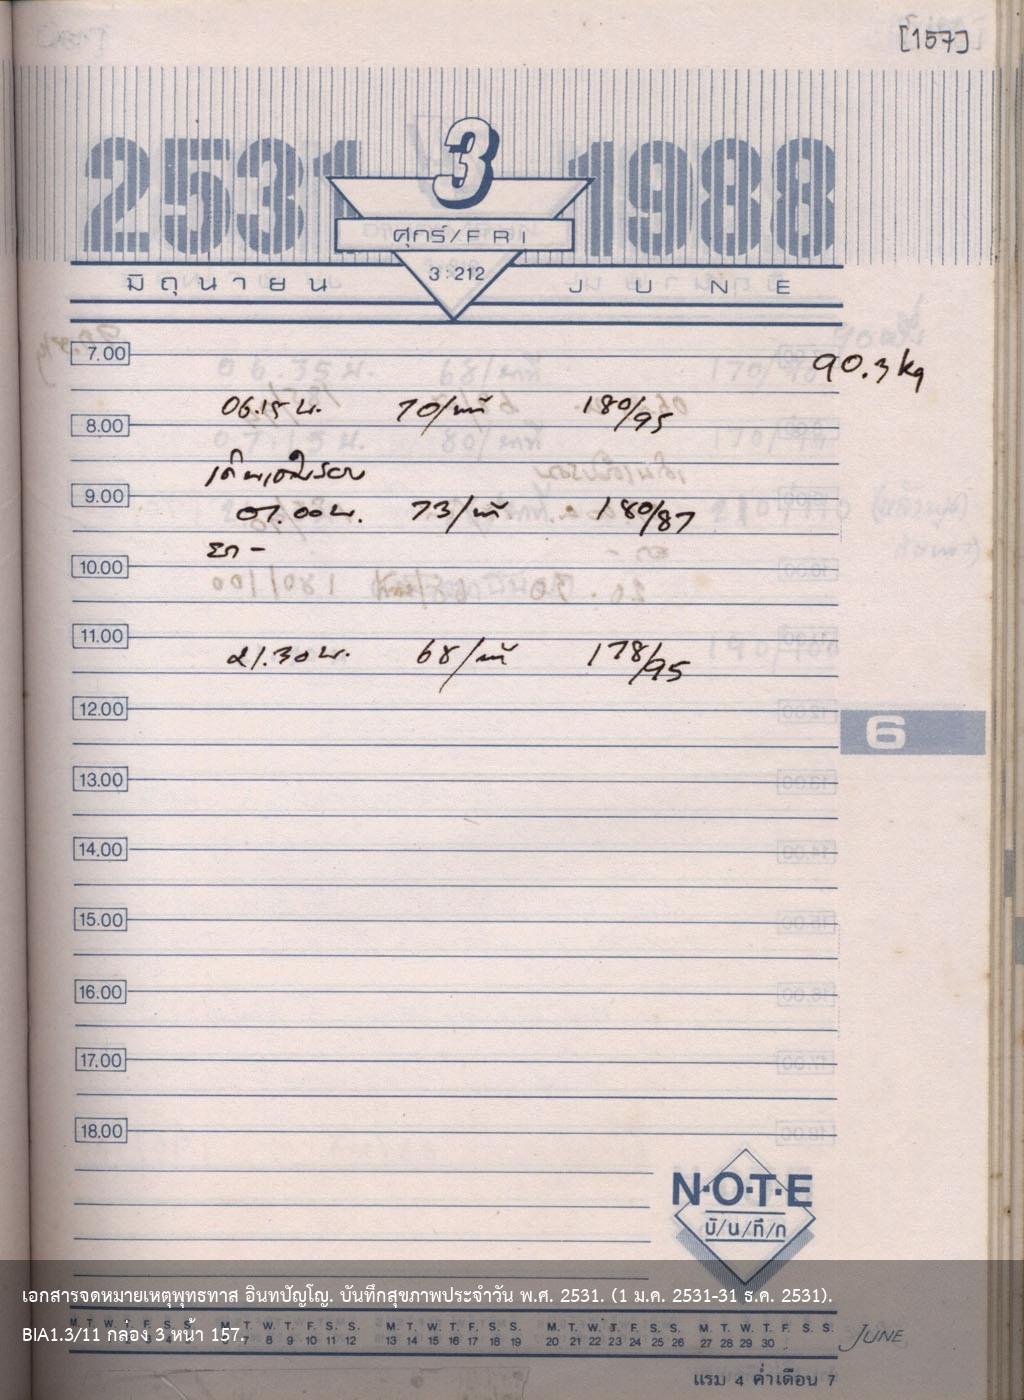 [157]
2531 3 1988
ศุกร์/FRI
3:212
มิถุนายน JUNE
7.00
90.3 kg
06.15 น. 70/นาที 180/95
8.00
9.00
07.00 น. 73/นาที 180/87
10.00
11.00
21.30 น. 68/นาที 178/95
12.00
6
13.00
14.00
15.00
16.00
17.00
18.00
N·O·T·E
บั/น/ทึ/ก
เอกสารจดหมายเหตุพุทธทาส อินทปัญโญ. บันทึกสุขภาพประจำวัน พ.ศ. 2531. (1 ม.ค. 2531-31 ธ.ค. 2531).
BIA1.3/11 กล่อง 3 หน้า 157.
M. T. W. T. F. S. S. M. T. W. T. F. S. S. M. T. W. T. F. S. S. M. T. W. T. F. S. S.
7 8 9 10 11 12 13 14 15 16 17 18 19 20 21 22 23 24 25 26 27 28 29 30
JUNE
แรม 4 ค่ำเดือน 7